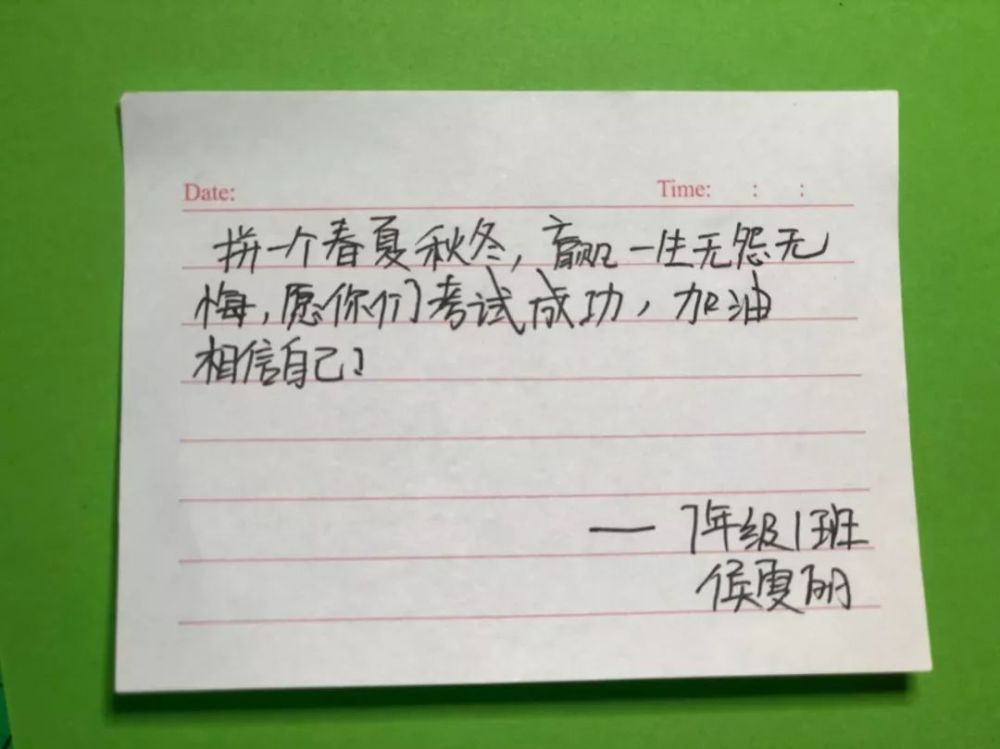 Date: Time: : :
拼一个春夏秋冬,赢一生无怨无
悔,愿你们考试成功,加油
相信自己!
— 7年级1班
侯雯丽